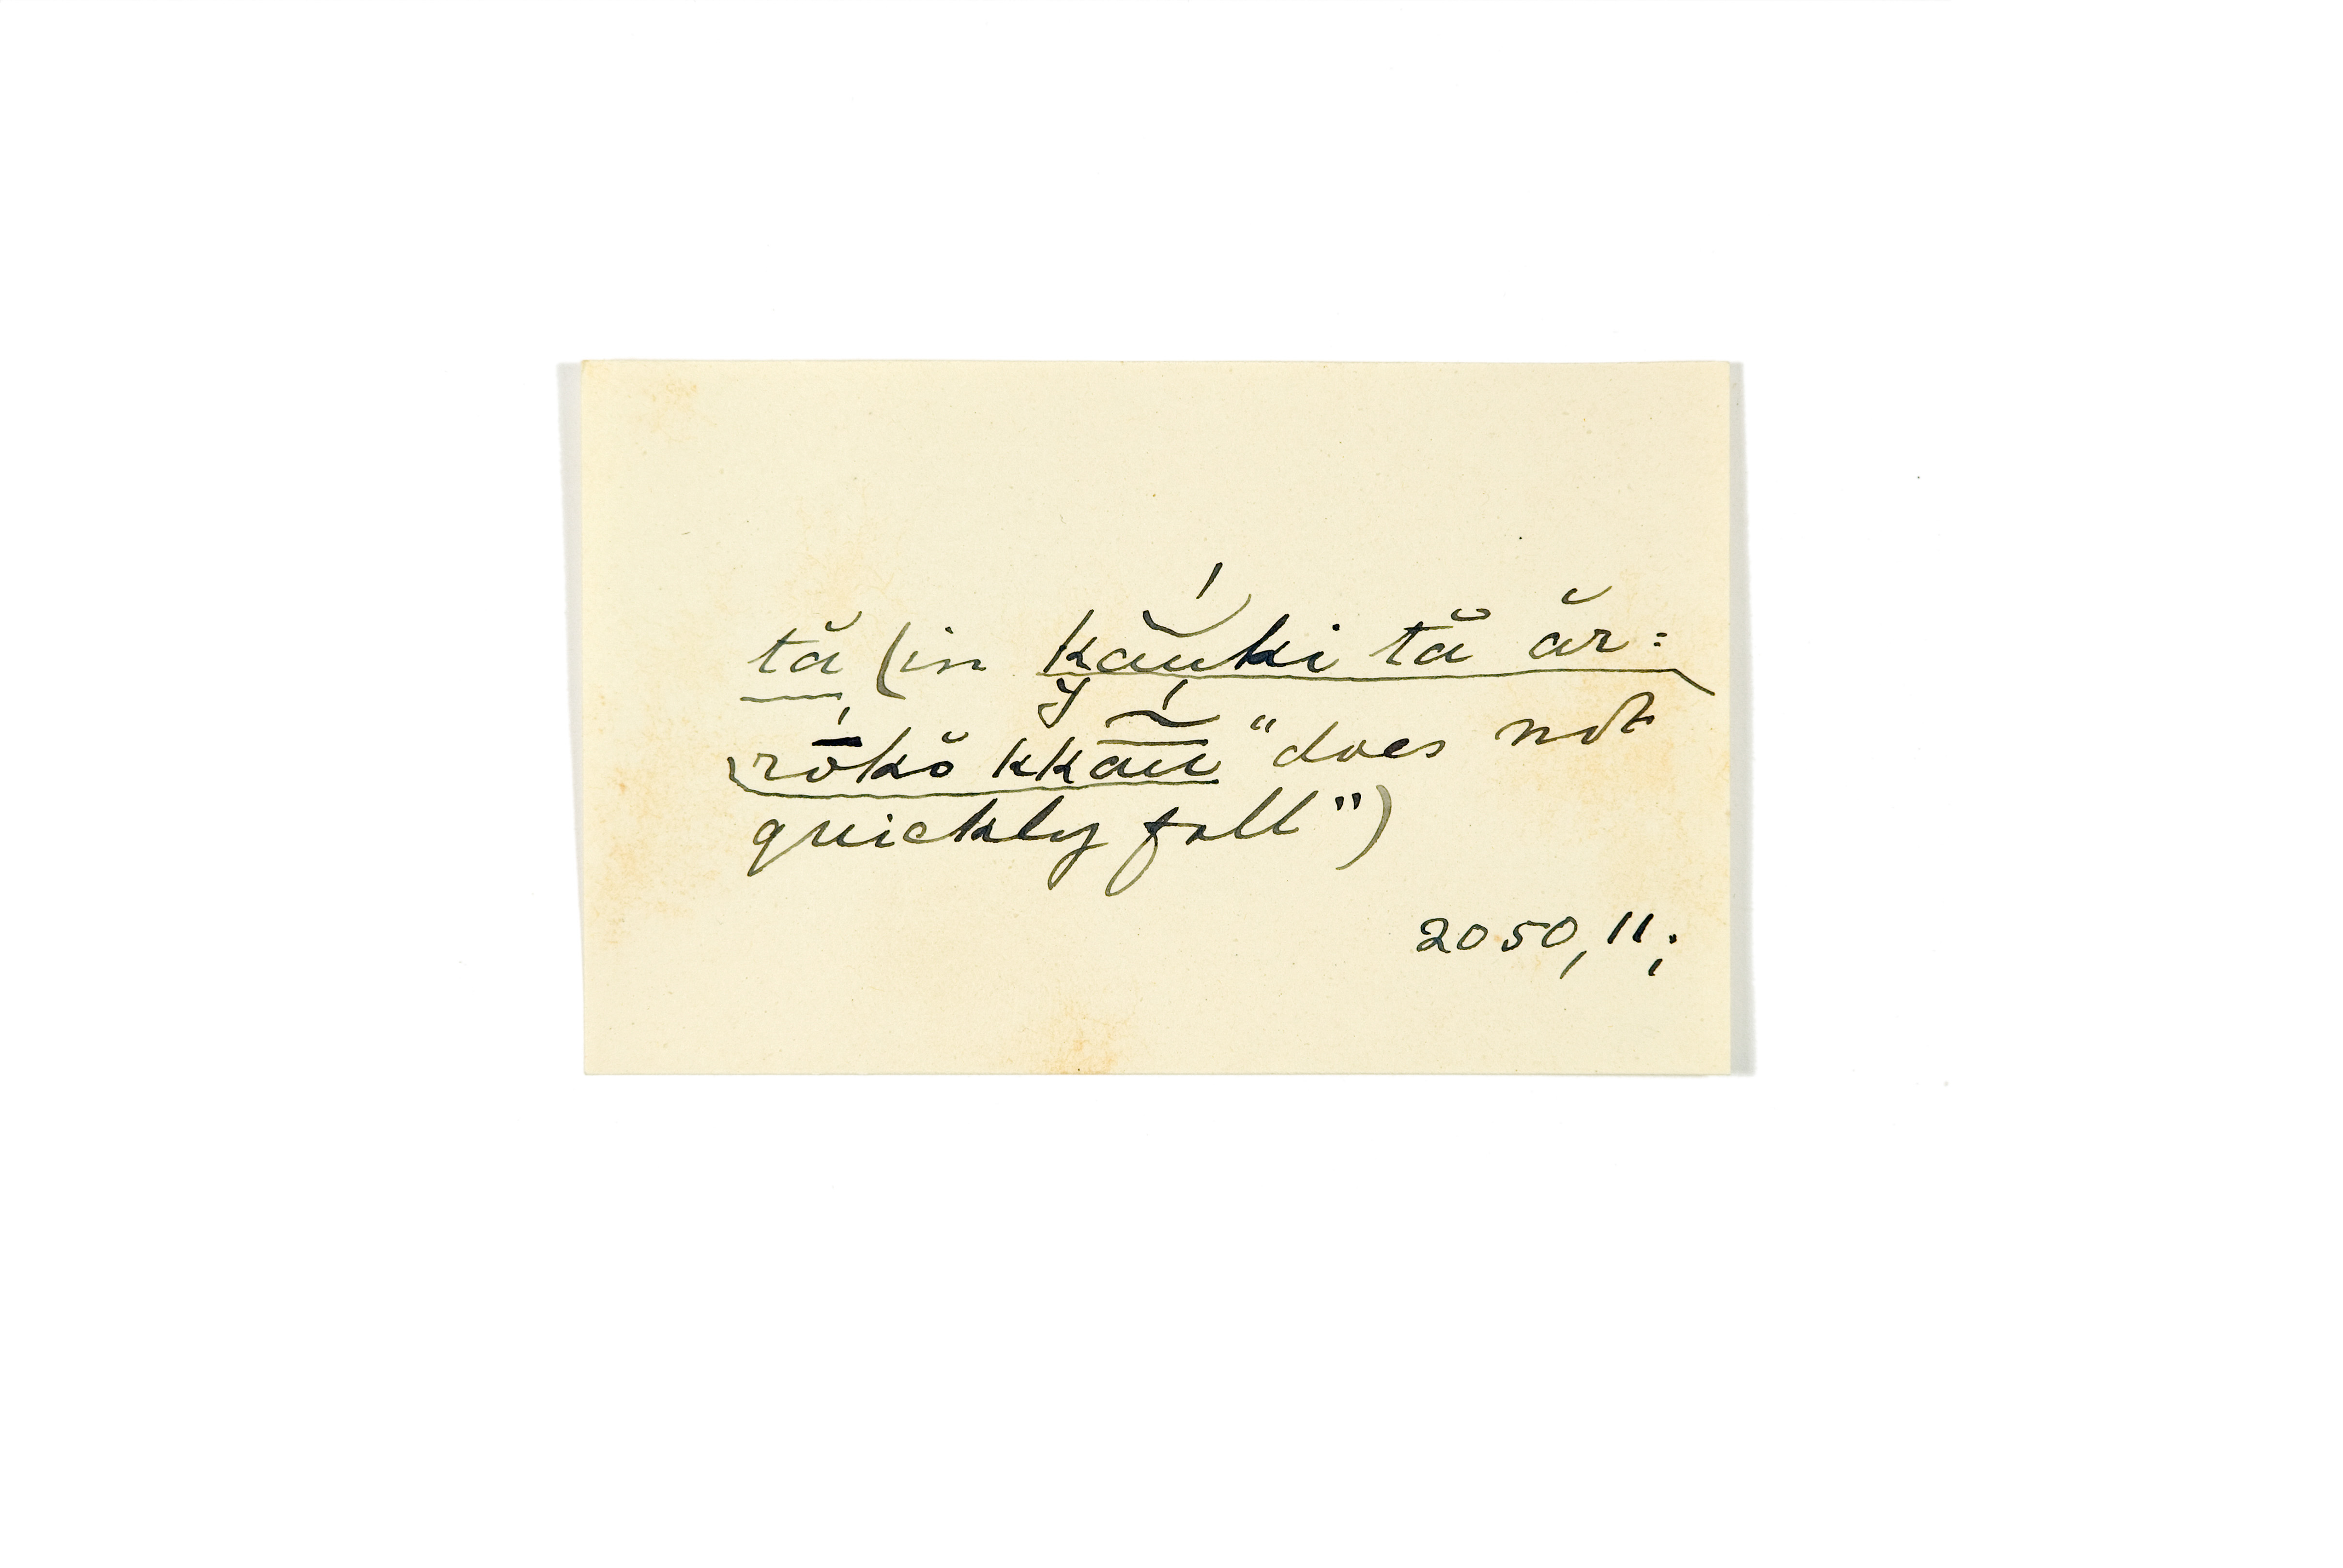 tă (in kắuki tā̆ ăr=
rṓkŏ kkā̰́u "does not
quickly fall")
2050, 11;